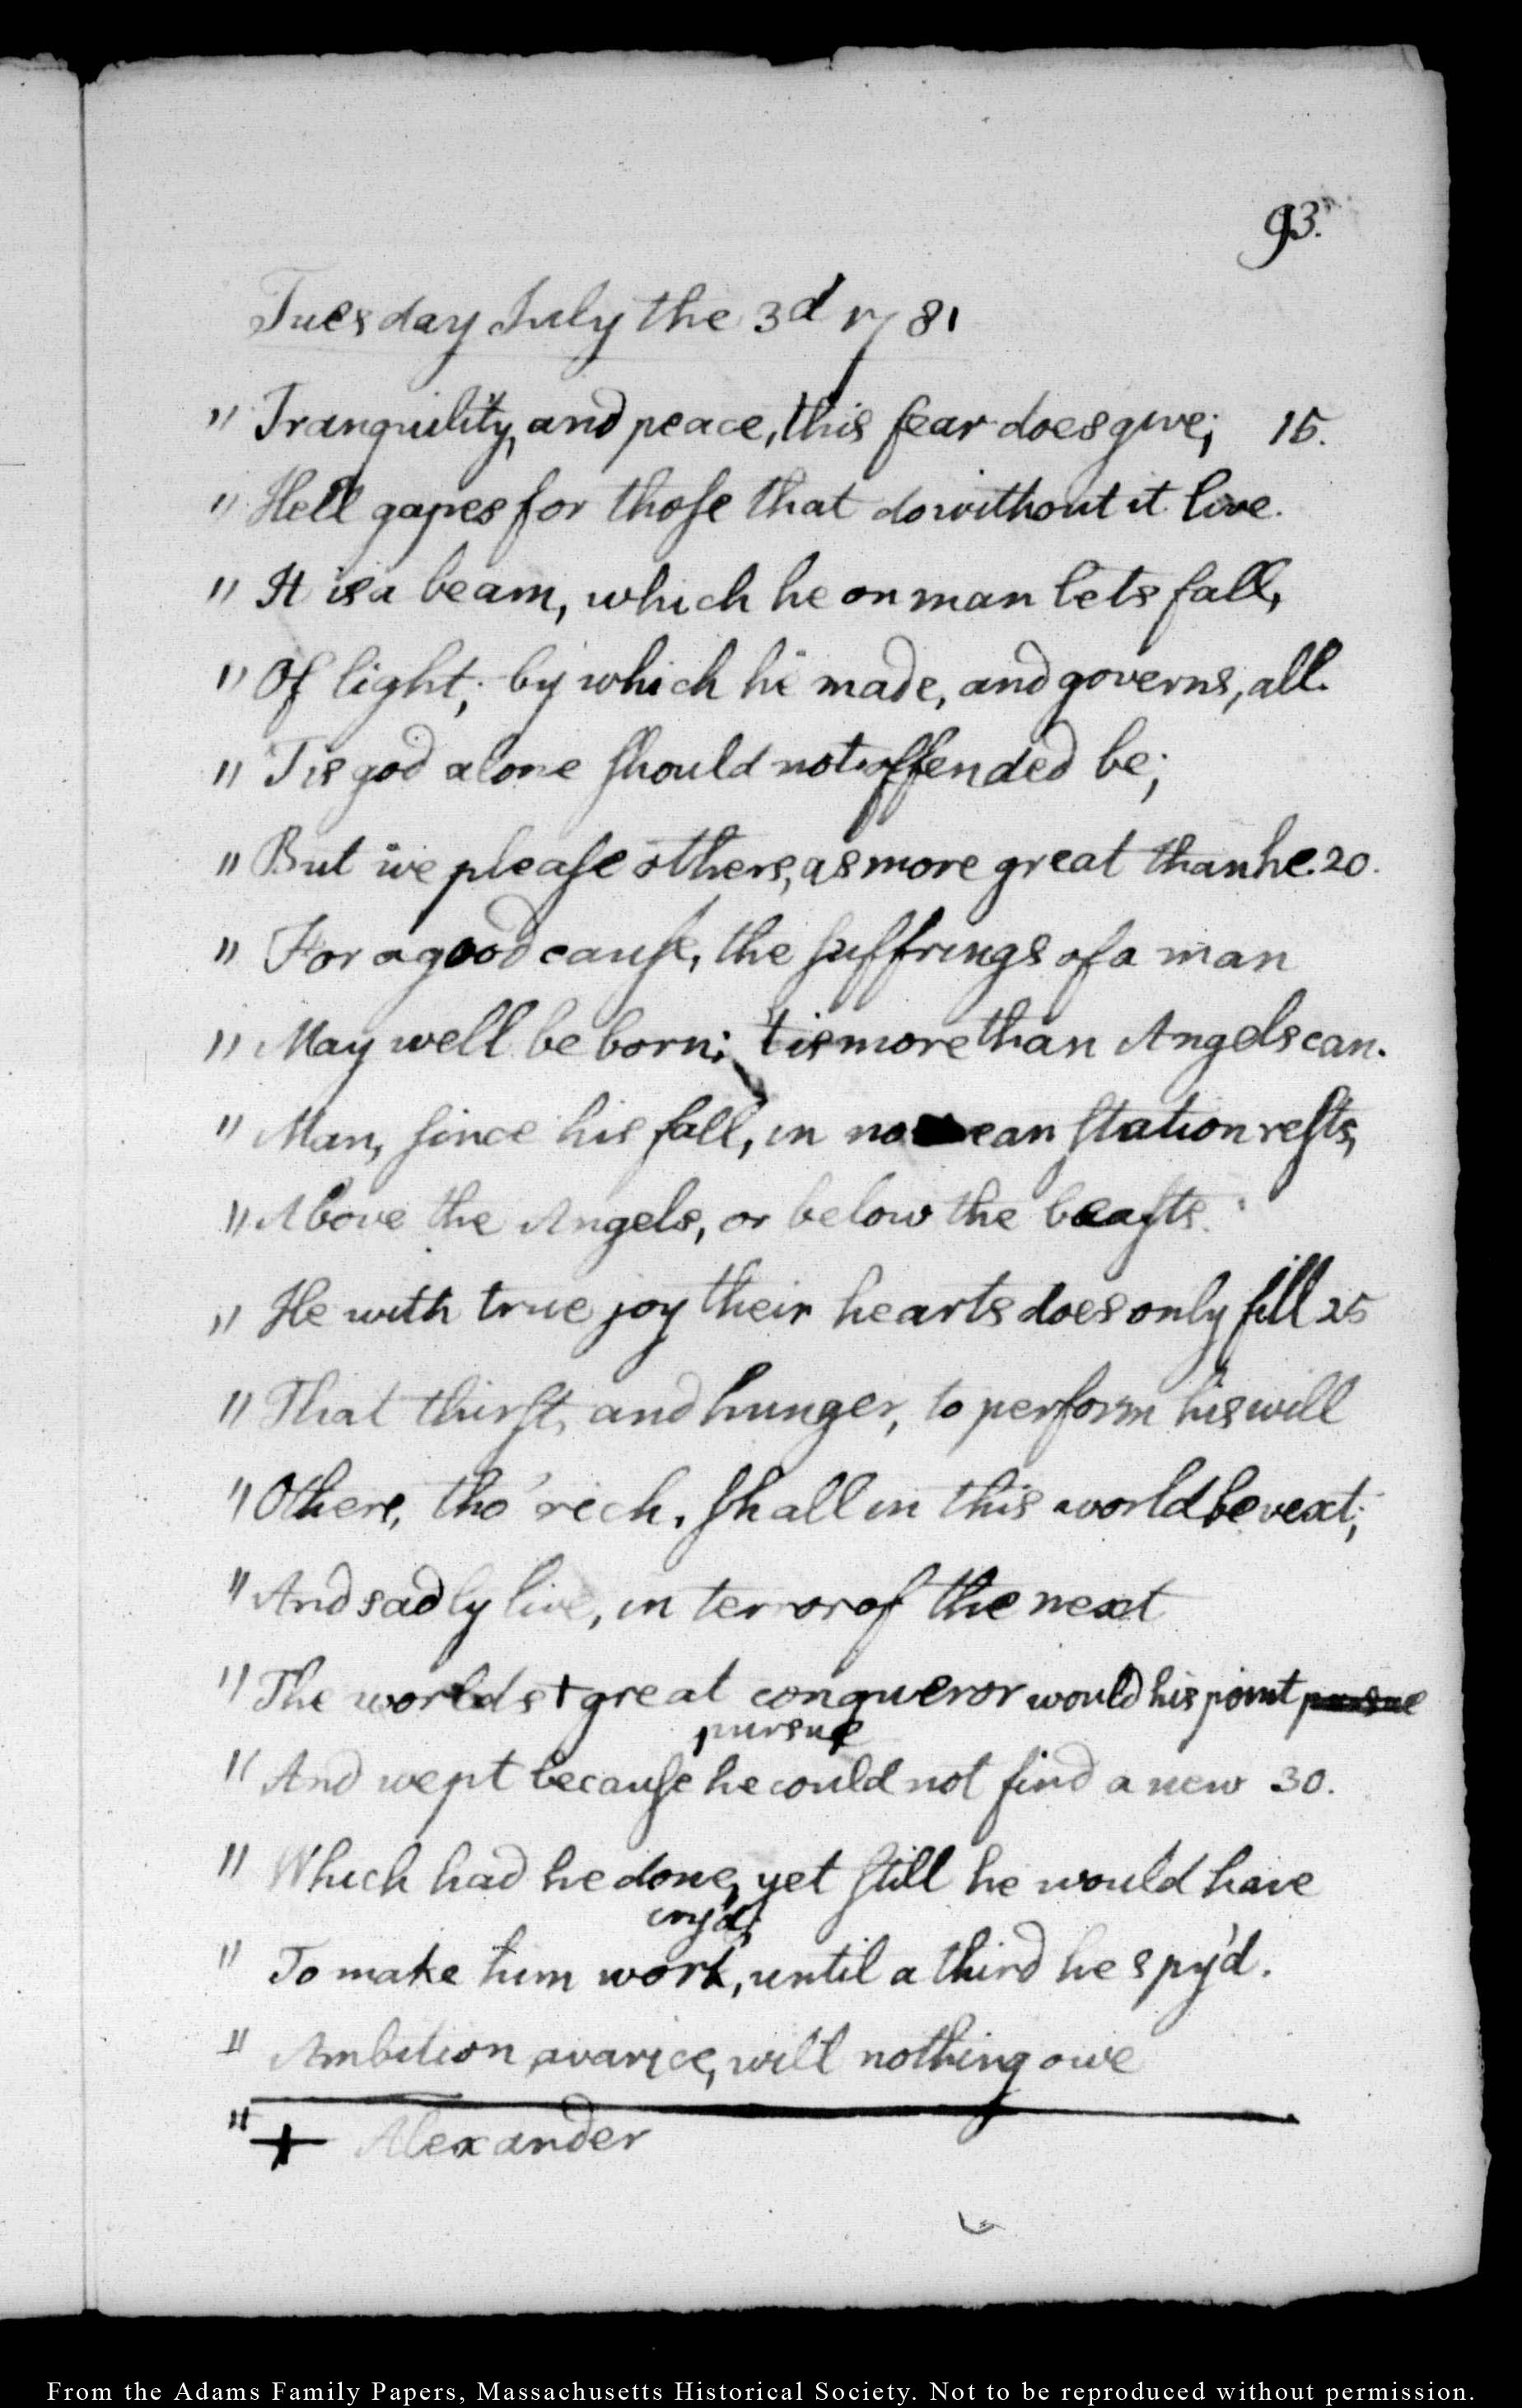 93.
Tuesday July the 3d 1781
" Tranquility, and peace, this fear does give; 15.
" Hell gapes for those that do without it live.
" It is a beam, which he on man lets fall,
" Of light; by which he made, and governs, all.
" T is god alone should not offended be;
" But we please others, as more great than he. 20.
" For a good cause, the suffrings of a man
" May well be born; 'tis more than Angels can.
" Man, since his fall, in no mean station rests,
" Above the Angels, or below the beasts.
" He with true joy their hearts does only fill 25
" That thirst, and hunger, to perform his will
" Others, tho' rich, shall in this world be vext;
" And sadly live, in terror of the next
" The worlds + great conqueror would his point pursue
pursue
" And wept because he could not find a new 30.
" Which had he done, yet still he would have
cry'd,
" To make him work, until a third he spy'd.
" Ambition, avarice, will nothing owe
" + Alexander
From the Adams Family Papers, Massachusetts Historical Society. Not to be reproduced without permission.